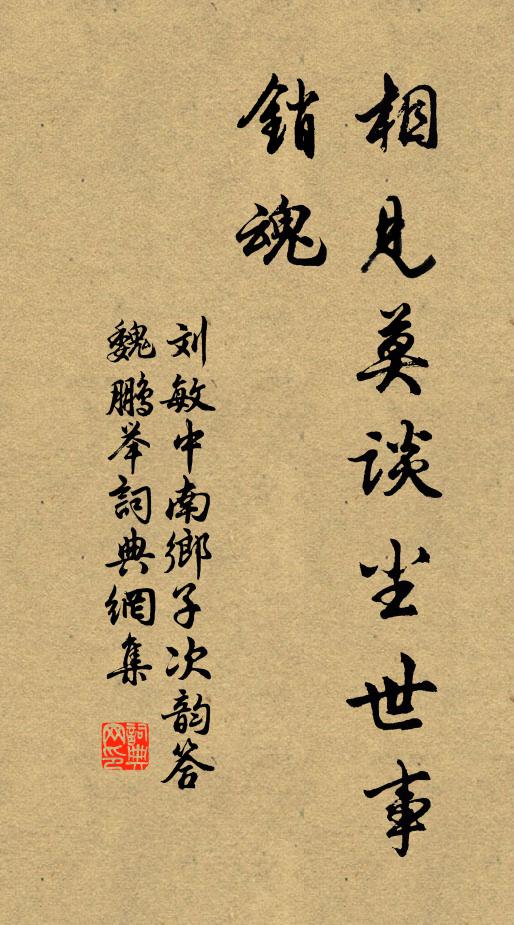 相見莫談尘世事
銷魂
刘敏中南鄉子次韵答
魏鵬举詞典網集
詞典
网印